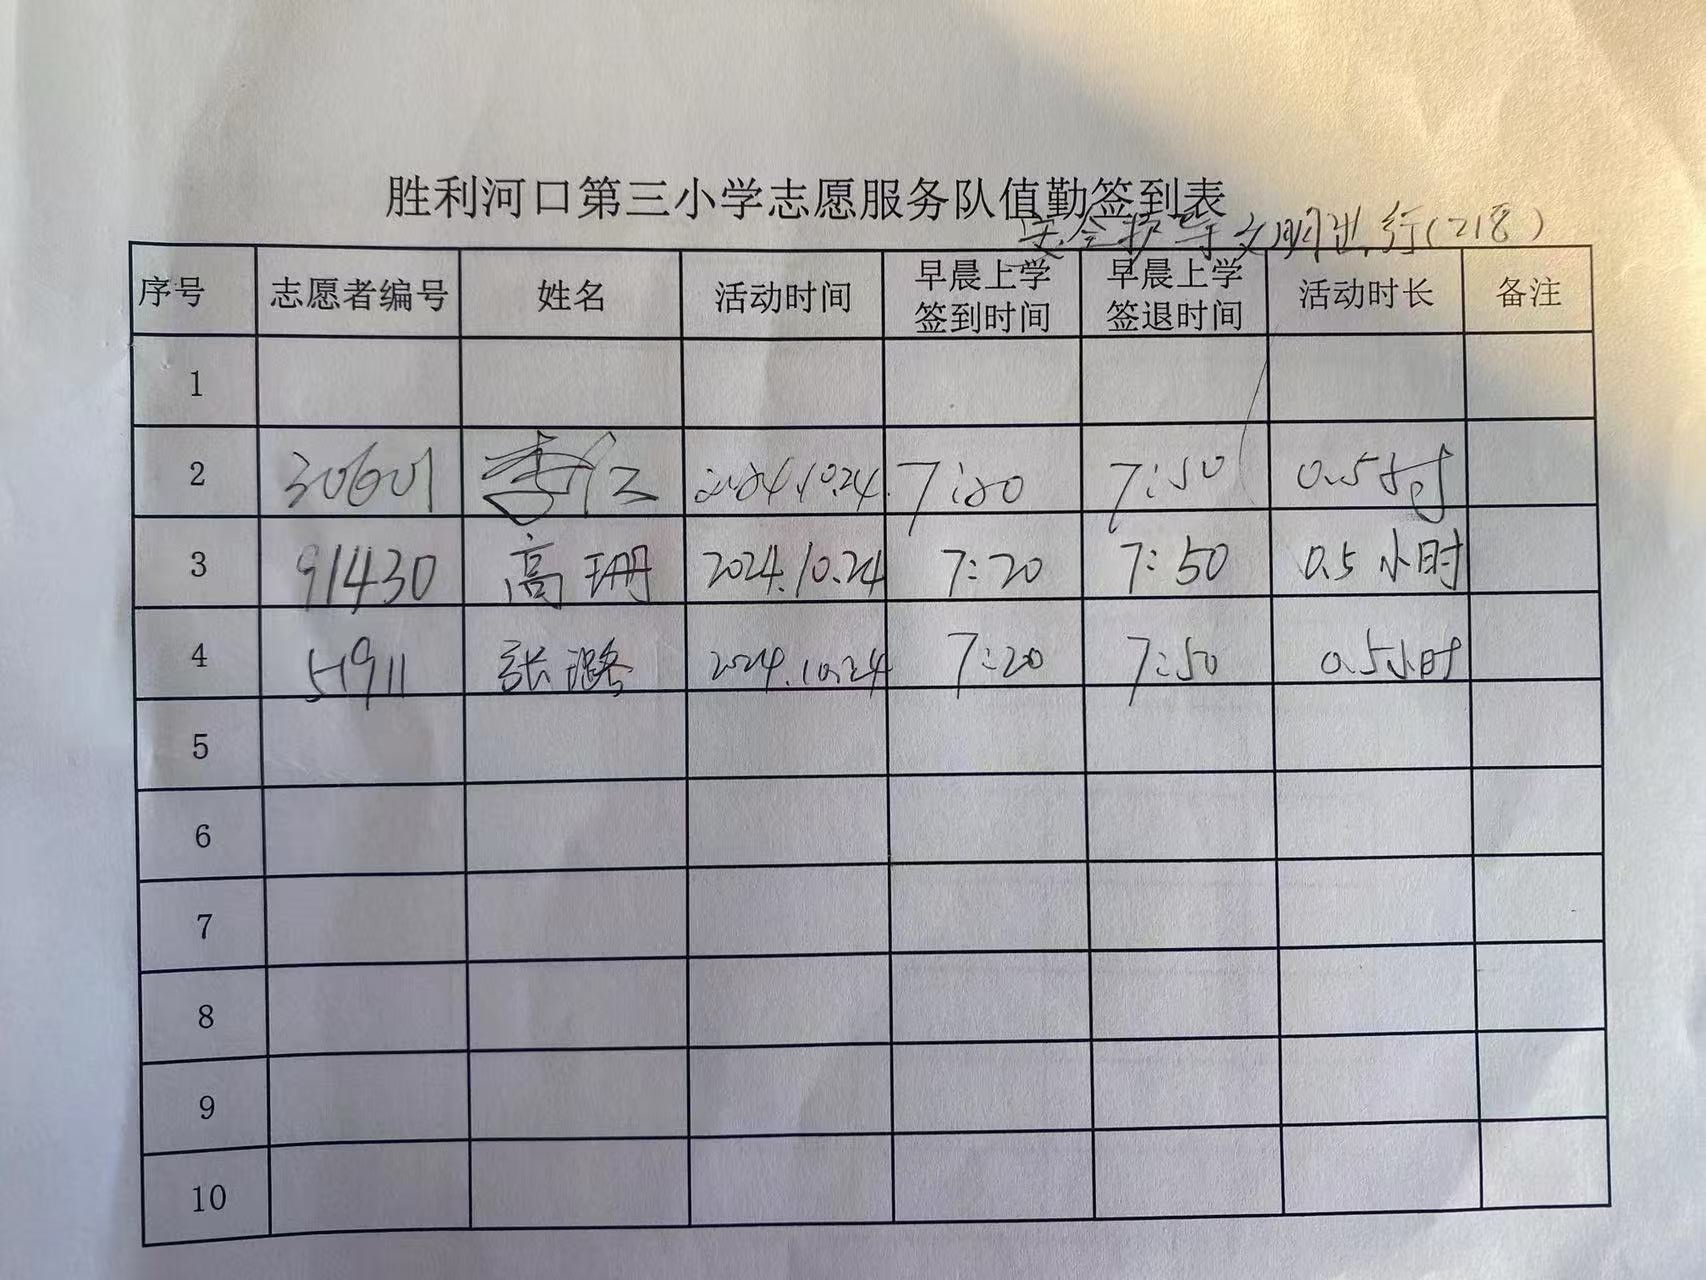 胜利河口第三小学志愿服务队值勤签到表
安全护导文明出行(218)
序号 志愿者编号 姓名 活动时间 早晨上学签到时间 早晨上学签退时间 活动时长 备注
1
2 30601 李仁 2024.10.24 7:20 7:50 0.5时
3 91430 高珊 2024.10.24 7:20 7:50 0.5小时
4 51911 张璐 2024.10.24 7:20 7:50 0.5小时
5
6
7
8
9
10